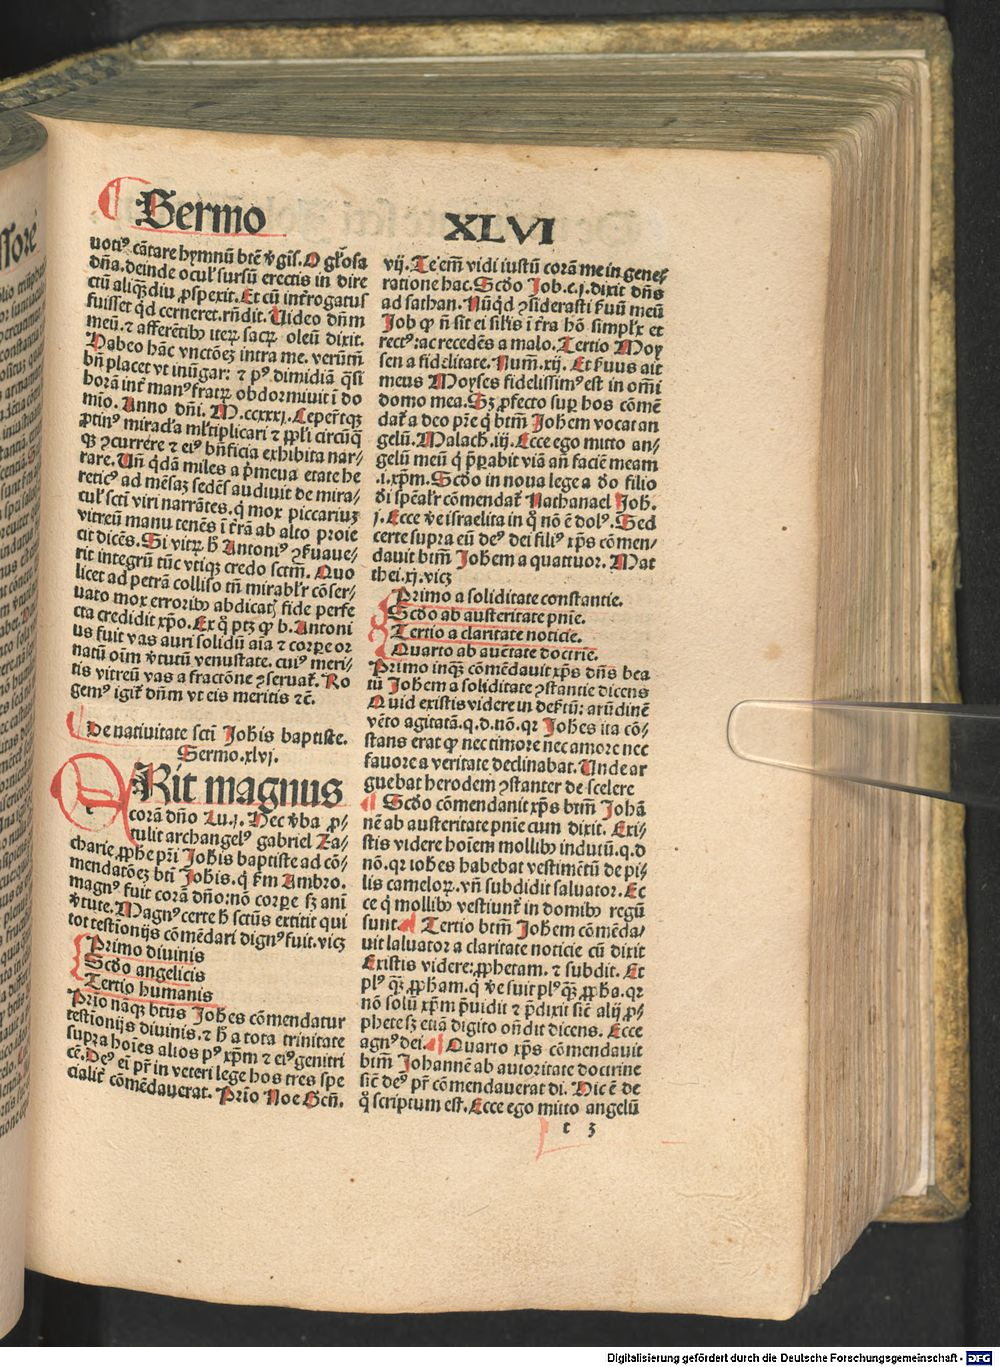 Sermo XLVI
votiꝰ cãtare hymnũ btẽ ꝟgĩs. O gl'osa
dña. deinde ocul' sursũ erectis in dire
ctũ aliqꝫdiu ꝓspexit. Et cũ int'rogatus
fuisset qd cerneret. rñdit. Video dñm
meũ. ⁊ afferẽtibꝰ iteꝝ sacꝝ oleũ dixit.
Habeo hãc vnctõeꝫ intra me. verũtñ
bñ placet vt inũgar: ⁊ pꝰ dimidiã q̃si
horã int' manꝰ fratꝝ obdormiuit ĩ do
mĩo. Anno dñi. M.ccxxxj. Ceperũtqꝫ
ꝓtinꝰ miracl'a ml'tiplicari ⁊ ppl'i circũq
qꝫ ꝯcurrere ⁊ eiꝰ bñficia exhibita nar-
rare. Vñ q̃dã miles a p̃meua etate he
reticꝰ ad mẽsaꝫ sedẽs audiuit de mira-
cul' scti viri narrãtes. q mox piccariuꝫ
vitreũ manu tenẽs ĩ t'rã ab alto proie
cit dicẽs. Si vitꝝ h̃ Antoniꝰ ꝯseruaue-
rit integrũ tũc vtiqꝫ credo sctm̃. Quo
licet ad petrã colliso tñ mirabl'r cõser-
uato mox erroribꝰ abdicatꝫ fide perfe
cta credidit xp̃o. Ex q̃ ptꝫ ꝙ b. Antoni
us fuit vas auri solidũ aĩa ⁊ corpe or
natũ oĩm ꝟtutũ venustate. cuiꝰ meri-
tis vitreũ vas a fractõne ꝯseruat'. Ro
gemꝰ igit' dñm vt eis meritis ⁊c̃.
De natiuitate scti Johis baptiste.
Sermo.xlvj.
ERit magnus
corã dño Lu.j. Hec ꝟba ꝓ-
tulit archangelꝰ gabriel Za-
charie ꝓphe pr̃i Johis baptiste ad cõ-
mendatõeꝫ bti Johis. q̃ fm Ambro.
magnꝰ fuit corã dño: nõ corpe sꝫ ani
ꝟtute. Magnꝰ certe h̃ sctũs extitit qui
tot testĩonijs cõmẽdari dignꝰ fuit. vicꝫ
Primo diuinis
Scd̃o angelicis
Tertio humanis
Prĩo nãqꝫ btũs Johes cõmendatur
testĩonijs diuinis. ⁊ h̃ a tota trinitate
supra hoĩes alios pꝰ xp̃m ⁊ eiꝰ genitri
cẽ. Deꝰ ei pr̃ in veteri lege hos tres spe
cialit' cõmẽdauerat. Prĩo Noe Geñ.
vij. Te em̃ vidi iustũ corã me in gene-
ratione hac. Scd̃o Job.e.j. dixit dñs
ad sathan. Nũqd ꝯsiderasti ẜuũ meũ
Job ꝙ ñ sit ei sil'is ĩ t'ra hõ simpl'x et
rectꝰ: ac recedẽs a malo. Tertio Moy
sen a fidelitate. Num̃.xij. Et ẜuus ait
meus Moyses fidelissimꝰ est in om̃i
domo mea. Sꝫ ꝓfecto suꝑ hos cõmẽ
dat' a deo pr̃e q̃ btm̃ Johem vocat an
gelũ. Malach.iij. Ecce ego mitto an-
gelũ meũ q̃ p̃parabit viã añ faciẽ meam
.i.xp̃m. Scd̃o in noua lege a d̃o filio
d̃i spẽal'r cõmendat' Nathanael Joh.
j. Ecce ꝟe israelita in q̃ nõ ẽ dolꝰ. Sed
certe supra eũ deꝰ dei filiꝰ xp̃s cõmen-
dauit btm̃ Johem a quattuor. Mat
thei.xj.vicꝫ
Primo a soliditate constantie.
Scd̃o ab austeritate pnie.
Tertio a claritate noticie.
Quarto ab auẽtate doctrie.
Primo inqꝫ cõmẽdauit xp̃s dñs bea
tũ Johem a soliditate ꝯstantie dicens
Quid existis videre in desertũ: arũdinẽ
vẽto agitatã. q.d. nõ. qr Johes ita cõ-
stans erat ꝙ nec timore nec amore nec
fauore a veritate declinabat. Unde ar
guebat herodem ꝯstanter de scelere
Scd̃o cõmendauit xp̃s btm̃ Johã
nẽ ab austeritate pnie cum dixit. Exi-
stis videre hoĩem mollibꝰ indutũ. q.d
nõ. qr iohes habebat vestimẽtũ de pi-
lis cameloꝝ. vñ subdidit saluator. Ec
ce q̃ mollibꝰ vestiunt' in domibꝰ regũ
sunt. Tertio btm̃ Johem cõmẽda-
uit saluator a claritate noticie cũ dixit
Existis videre: ꝓphetam. ⁊ subdit. Et
plꝰ qꝫ ꝓpham. q̃ ꝟe fuit plꝰ qꝫ ꝓpha. qr
nõ solũ xp̃m p̃uidit ⁊ p̃dixit sic̃ alij ꝓ-
phete sꝫ etiã digito oñdit dicens. Ecce
agnꝰ dei. Quarto xp̃s cõmendauit
btm̃ Johannẽ ab autoritate doctrine
sic̃ deꝰ pr̃ cõmendauerat di. Hic ẽ de
q̃ scriptum est. Ecce ego mitto angelũ
t 3
Digitalisierung gefördert durch die Deutsche Forschungsgemeinschaft - DFG